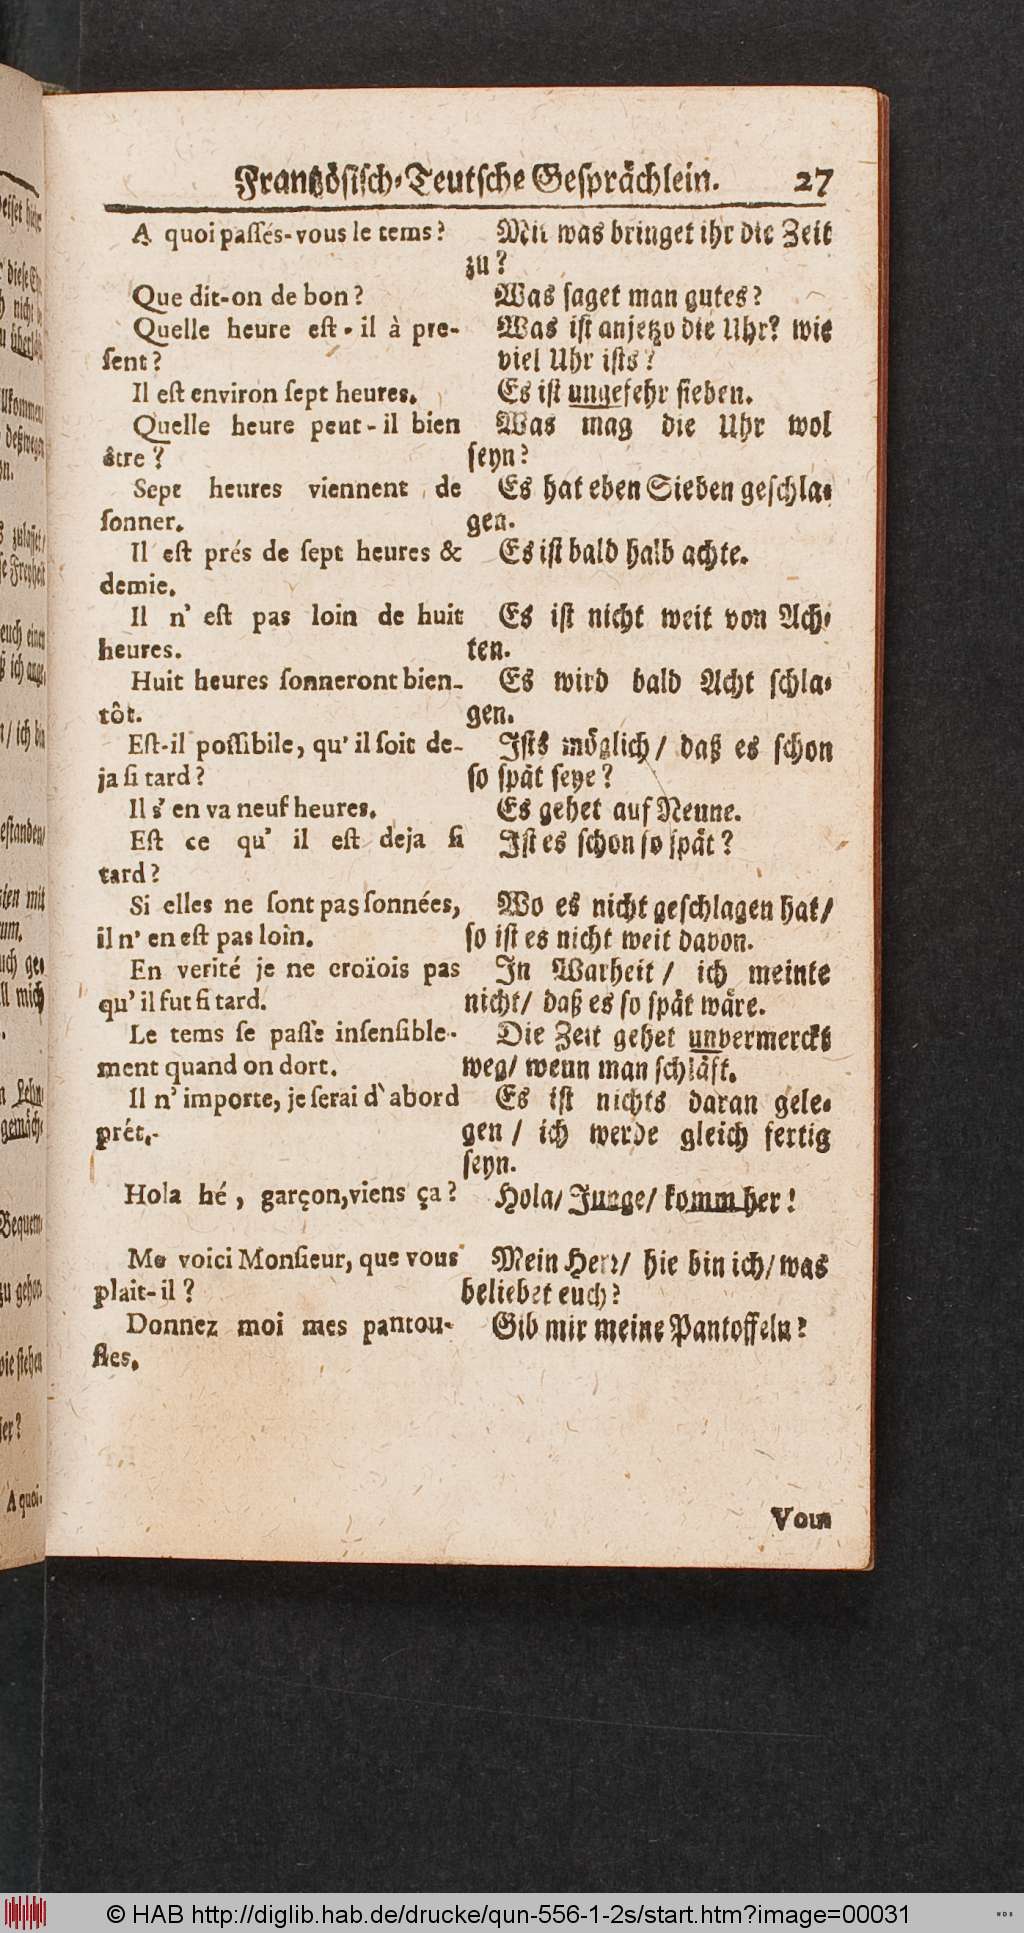 Frantzösisch-Teutsche Gesprächlein. 27
A quoi passés-vous le tems?
Que dit-on de bon?
Quelle heure est-il à pre-
sent?
Il est environ sept heures.
Quelle heure peut-il bien
être?
Sept heures viennent de
sonner.
Il est prés de sept heures &
demie.
Il n' est pas loin de huit
heures.
Huit heures sonneront bien-
tôt.
Est-il possibile, qu' il soit de-
ja si tard?
Il s' en va neuf heures.
Est ce qu' il est deja si
tard?
Si elles ne sont pas sonnées,
il n' en est pas loin.
En verité je ne croïois pas
qu' il fut si tard.
Le tems se passe insensible-
ment quand on dort.
Il n' importe, je serai d' abord
prét.
Hola hé, garçon, viens ça?
Me voici Monsieur, que vous
plait-il?
Donnez moi mes pantou-
fles.
Mit was bringet ihr die Zeit
zu?
Was saget man gutes?
Was ist anjetzo die Uhr? wie
viel Uhr ists?
Es ist ungefehr sieben.
Was mag die Uhr wol
seyn?
Es hat eben Sieben geschla-
gen.
Es ist bald halb achte.
Es ist nicht weit von Ach-
ten.
Es wird bald Acht schla-
gen.
Ists möglich/ daß es schon
so spät seye?
Es gehet auf Neune.
Ist es schon so spät?
Wo es nicht geschlagen hat/
so ist es nicht weit davon.
In Warheit/ ich meinte
nicht/ daß es so spät wäre.
Die Zeit gehet unvermerckt
weg/ wenn man schläft.
Es ist nichts daran gele-
gen/ ich werde gleich fertig
seyn.
Hola/ Junge/ komm her!
Mein Herr/ hie bin ich/ was
beliebet euch?
Gib mir meine Pantoffeln!
Vom
A quoi-
© HAB http://diglib.hab.de/drucke/qun-556-1-2s/start.htm?image=00031